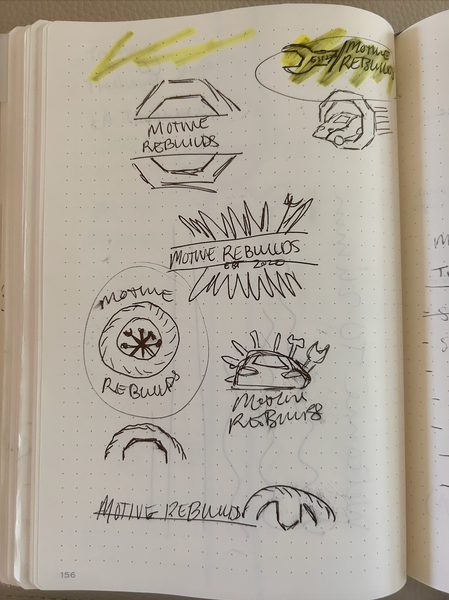 MOTIVE
REBUILDS
MOTIVE
REBUILDS
MOTIVE REBUILDS
EST 2020
MOTIVE
REBUILDS
MOTIVE
REBUILDS
MOTIVE REBUILDS
156